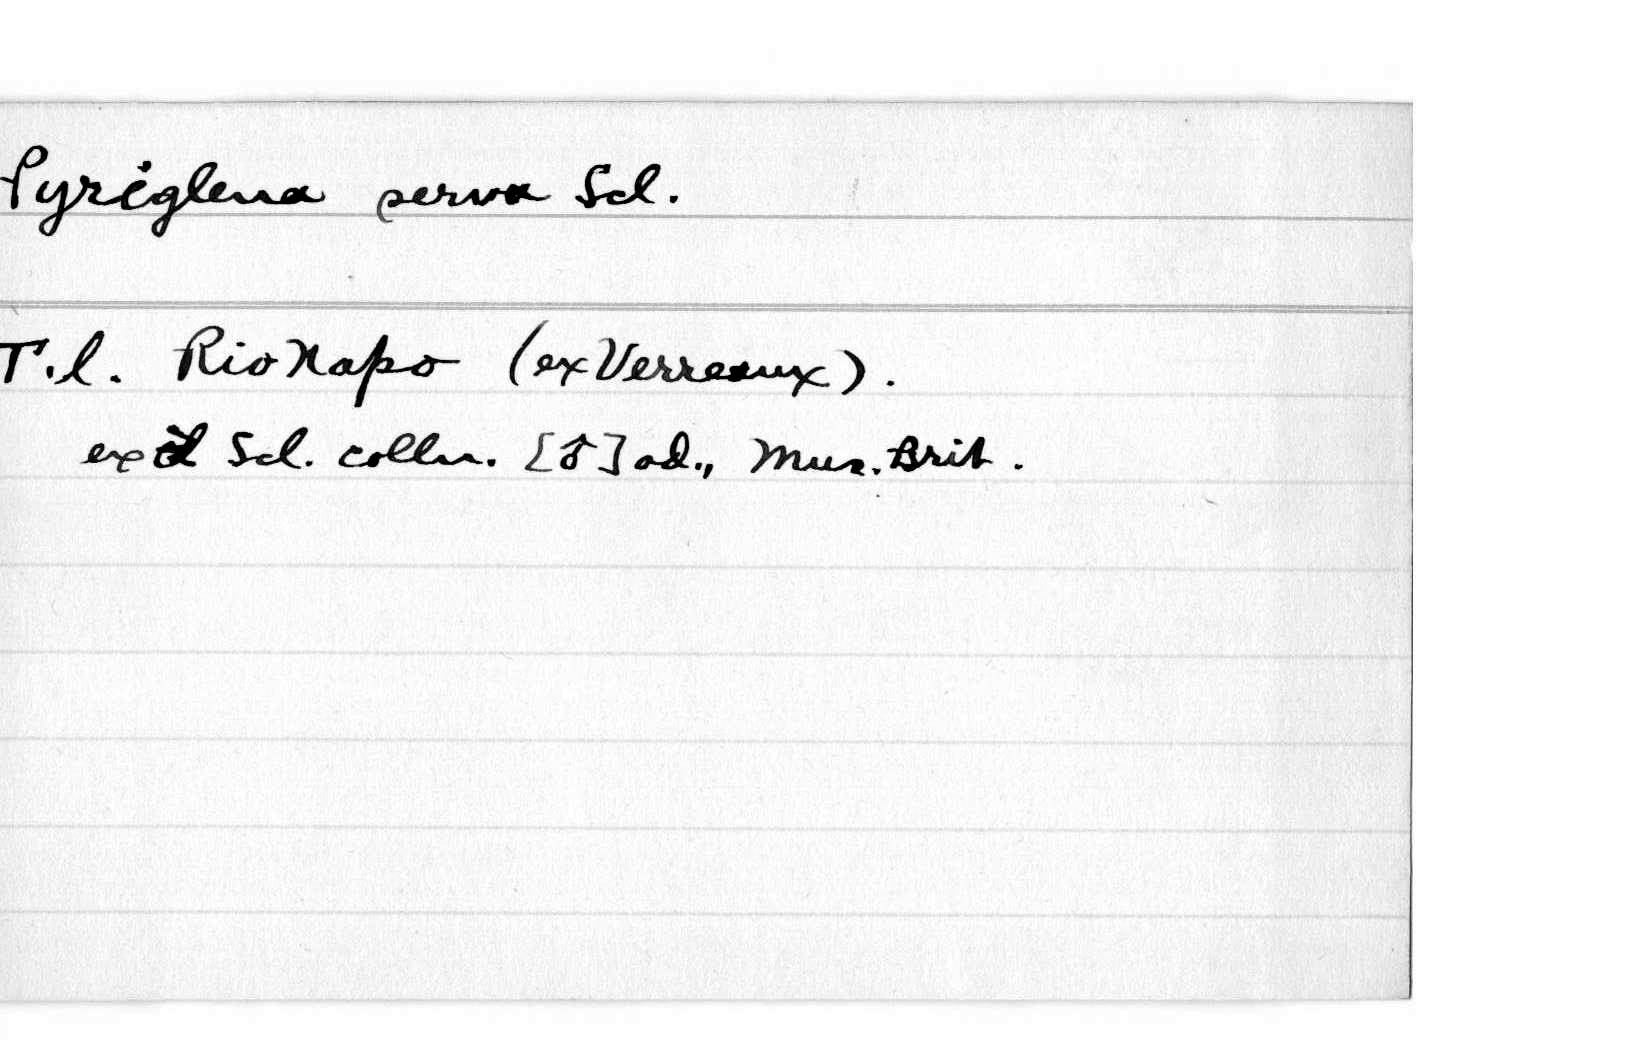 Pyriglena serva Scl.
T.l. Rio Napo (ex Verreaux).
ex Scl. colln. [♂] ad., Mus. Brit.